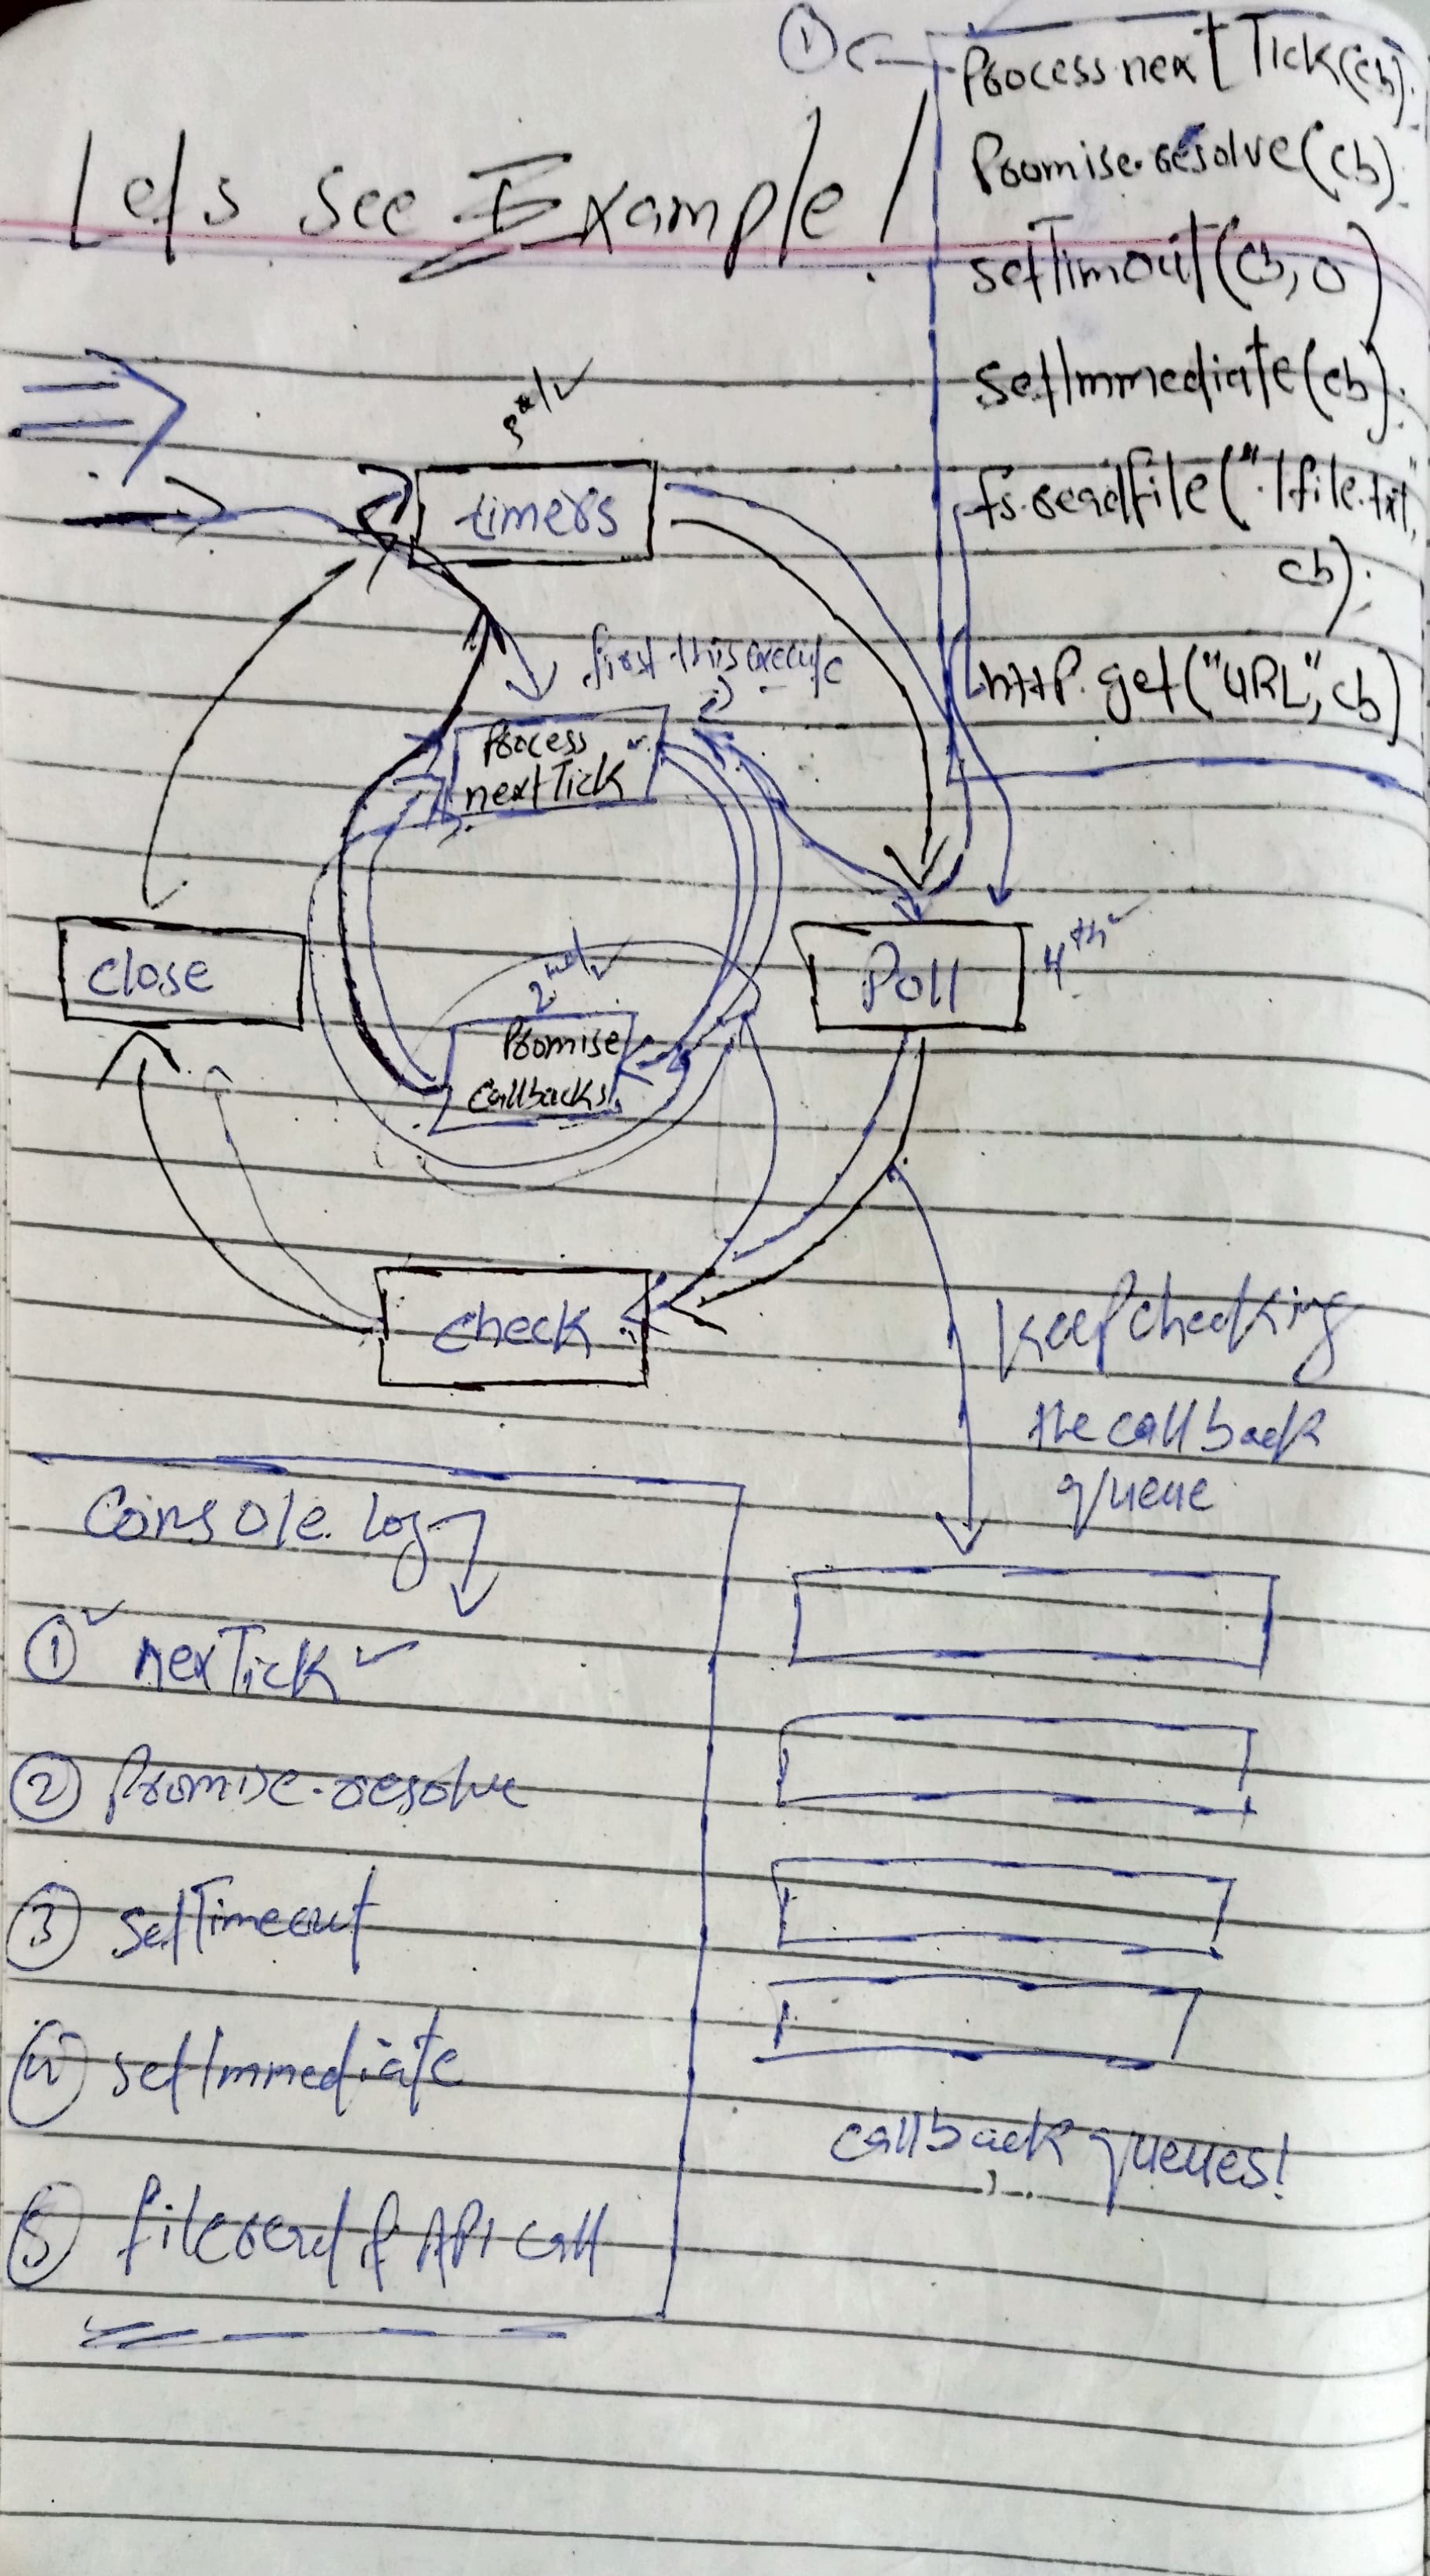 ①
Process.nextTick(cb);
Promise.resolve(cb);
setTimout(cb, 0)
setImmediate(cb);
fs.readFile("./file.txt",
cb);
http.get("URL", cb)
Let's see Example!
3rd ✓
timers
first this execute
Process
nextTick
close
2nd ✓
Promise
callbacks
Poll
4th ✓
check
Keep checking
the callback
queue
Console.log
① ✓ nexTick ✓
② Promise.resolve
③ setTimeout
④ setImmediate
⑤ file read & API call
callback queues!